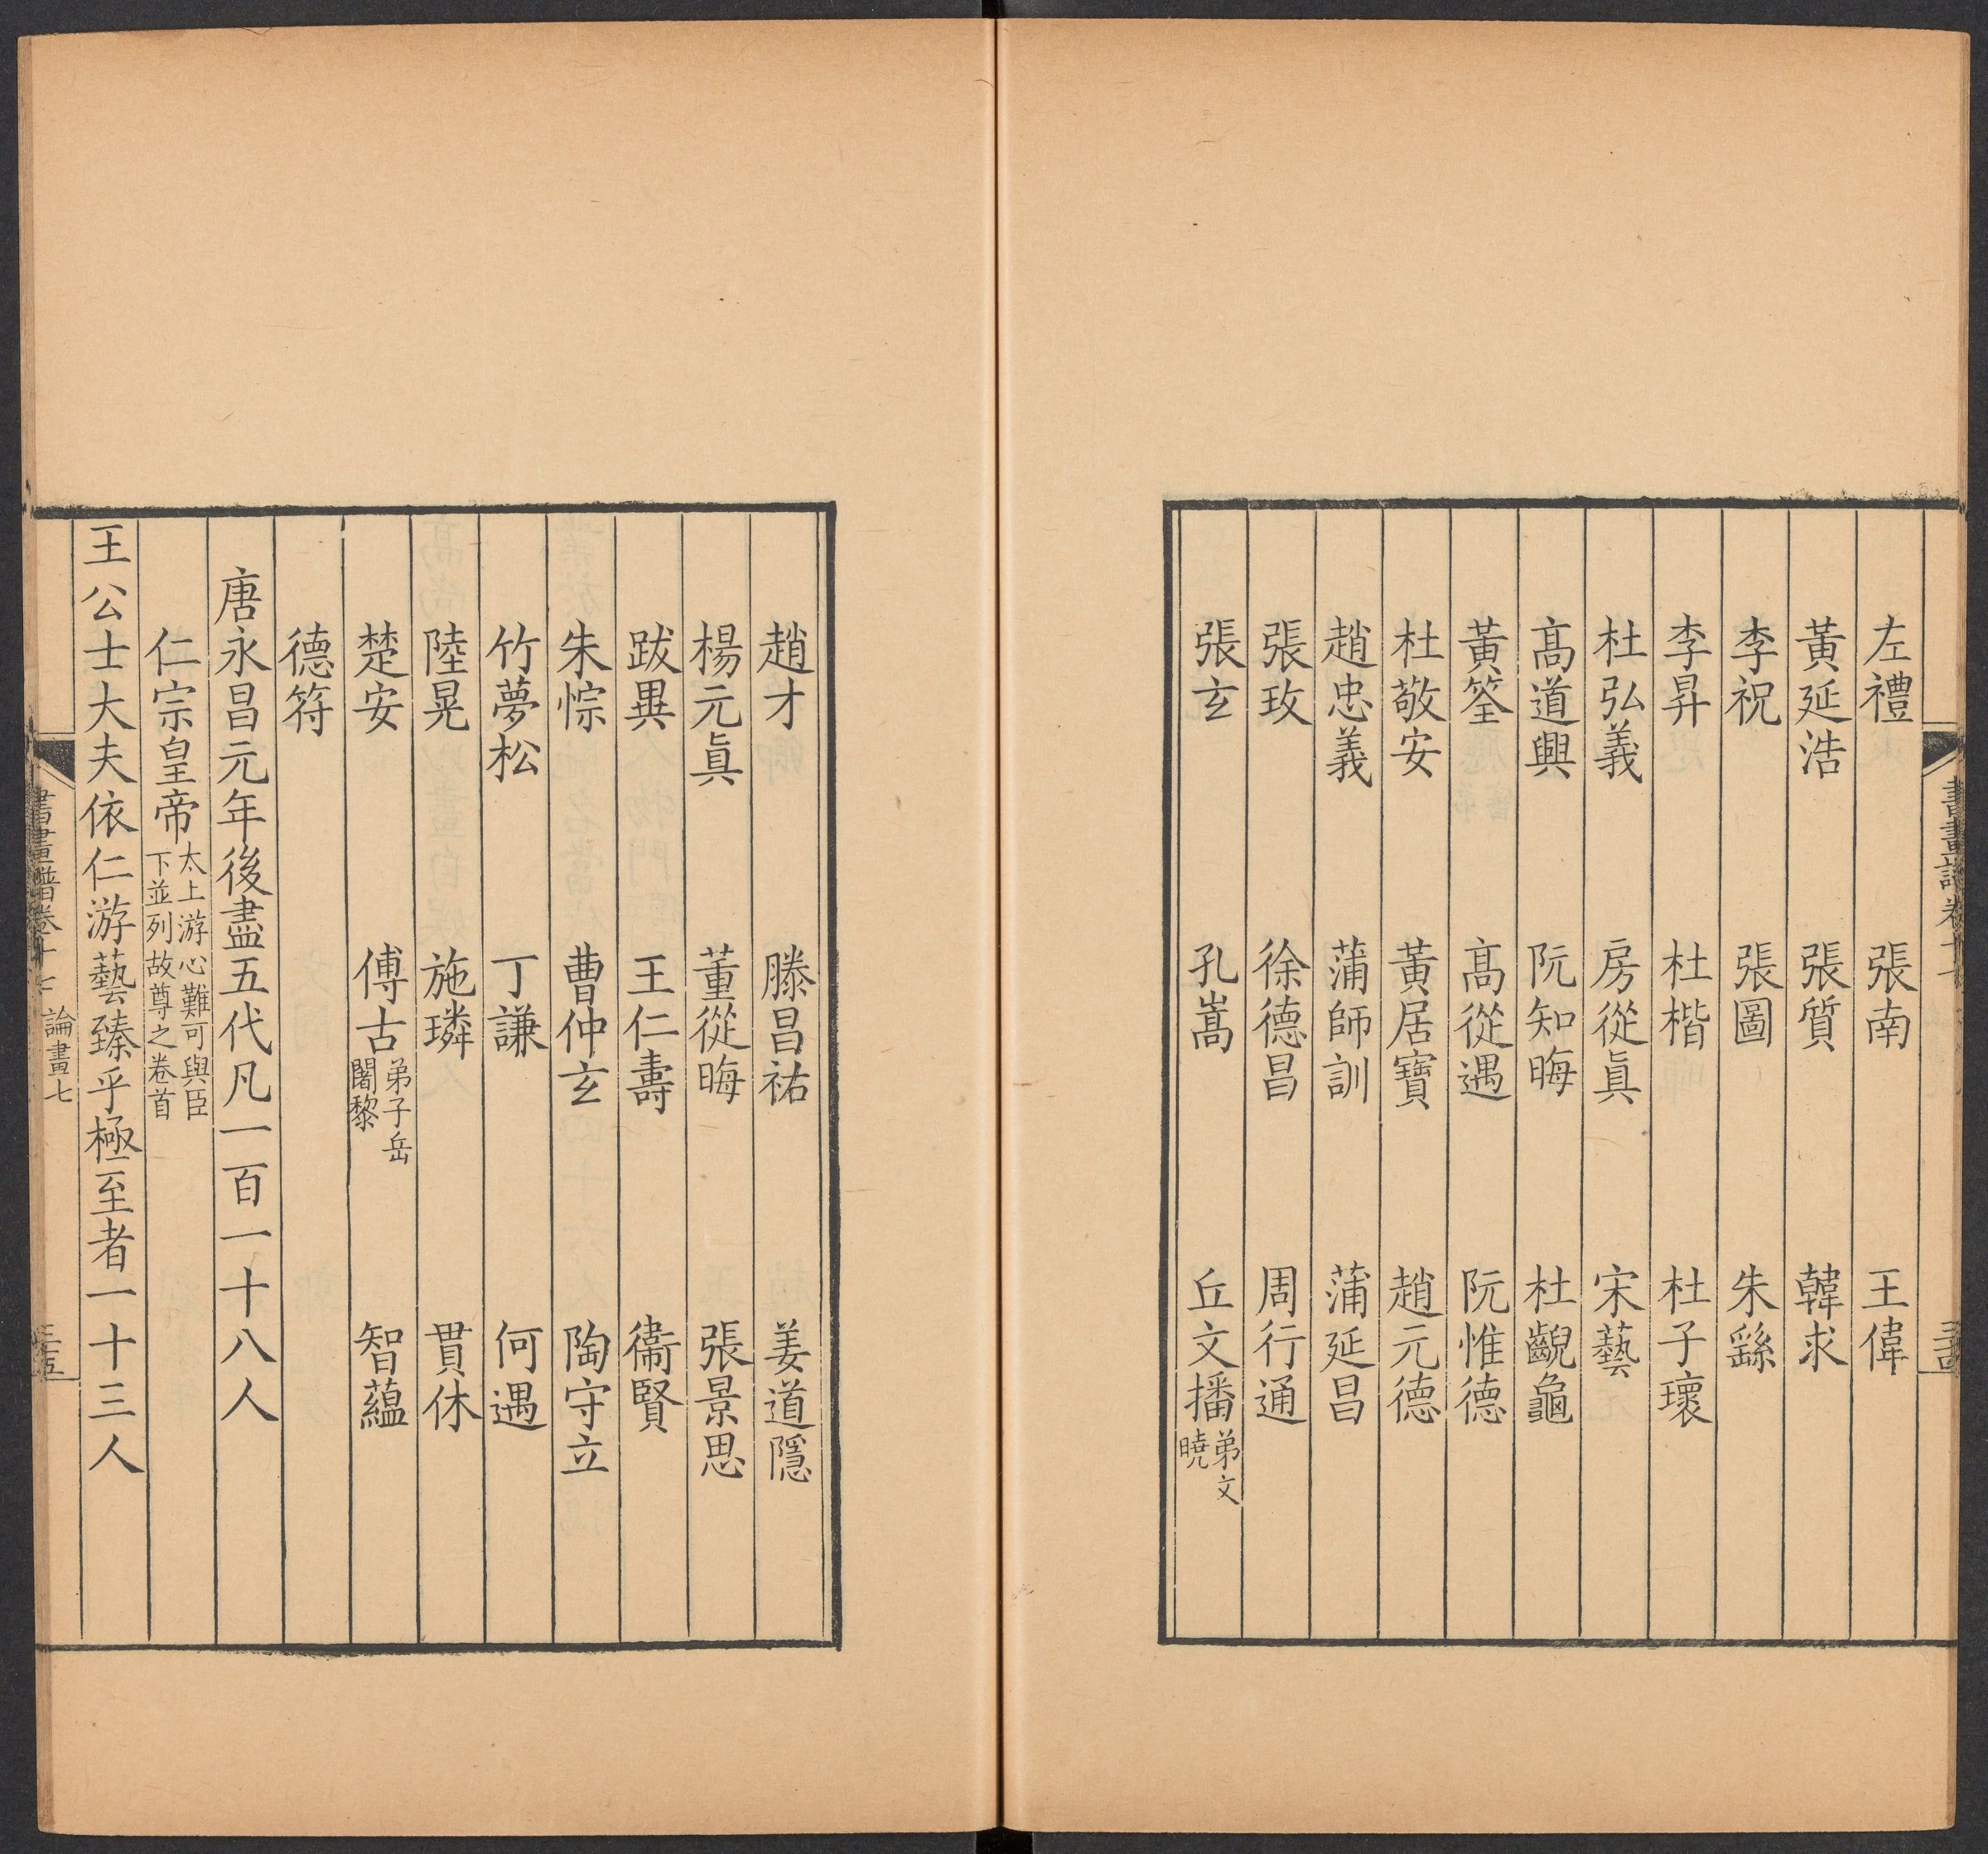 左禮　張南　王偉
黃延浩　張質　韓求
李祝　張圖　朱繇
李昇　杜楷　杜子瓌
杜弘義　房從眞　宋藝
高道興　阮知晦　杜齯龜
黃筌　高從遇　阮惟德
杜敬安　黃居寶　趙元德
趙忠義　蒲師訓　蒲延昌
張玫　徐德昌　周行通
張玄　孔嵩　丘文播弟文曉
趙才　滕昌祐　姜道隱
楊元眞　董從晦　張景思
跋異　王仁壽　衞賢
朱悰　曹仲玄　陶守立
竹夢松　丁謙　何遇
陸晃　施璘　貫休
楚安　傅古弟子岳闍黎　智蘊
德符
唐永昌元年後盡五代凡一百一十八人
仁宗皇帝太上游心難可與臣下並列故尊之卷首
王公士大夫依仁游藝臻乎極至者一十三人
書畫譜卷十七　論畫七